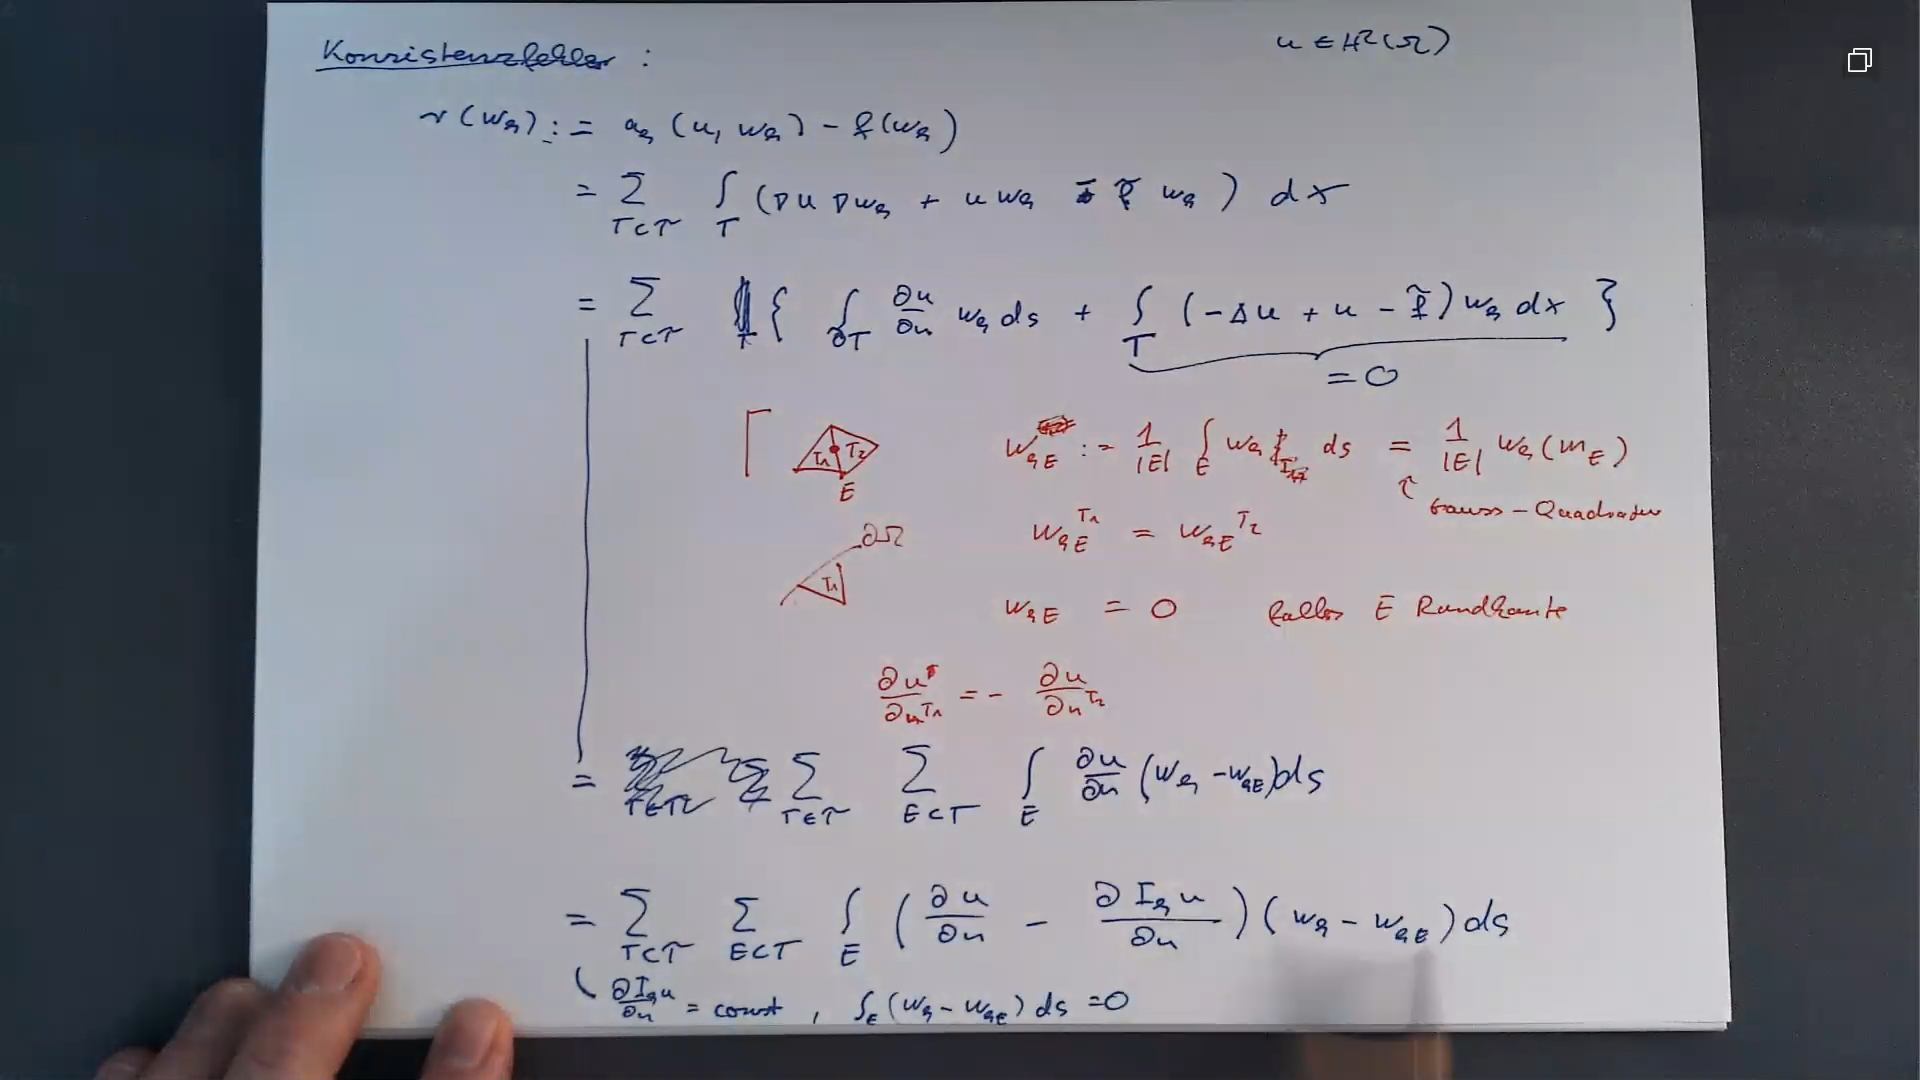 Konsistenzfehler : u ∈ H²(Ω)
r(w_h) := a_h (u, w_h) - f(w_h)
= Σ_{T⊂τ} ∫_T (∇u ∇w_h + u w_h - f̃ w_h) dx
= Σ_{T⊂τ} { ∫_{∂T} ∂u/∂n w_h ds + ∫_T (-Δu + u - f̃) w_h dx }
= 0
T₁ T₂ E
w_{hE} := 1/|E| ∫_E w_h ds = 1/|E| w_h(m_E)
↑ Gauss-Quadratur
w_{hE}^{T₁} = w_{hE}^{T₂}
∂Ω
T₁
w_{hE} = 0 falls E Randkante
∂u/∂n^{T₁} = - ∂u/∂n^{T₂}
= Σ_{T∈τ} Σ_{E⊂T} ∫_E ∂u/∂n (w_h - w_{hE}) ds
= Σ_{T⊂τ} Σ_{E⊂T} ∫_E (∂u/∂n - ∂I_h u/∂n) (w_h - w_{hE}) ds
∂I_h u/∂n = const , ∫_E (w_h - w_{hE}) ds = 0